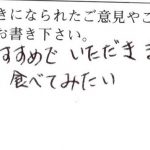 きになられたご意見やこ
お書き下さい。
すすめで いただきま
食べてみたい